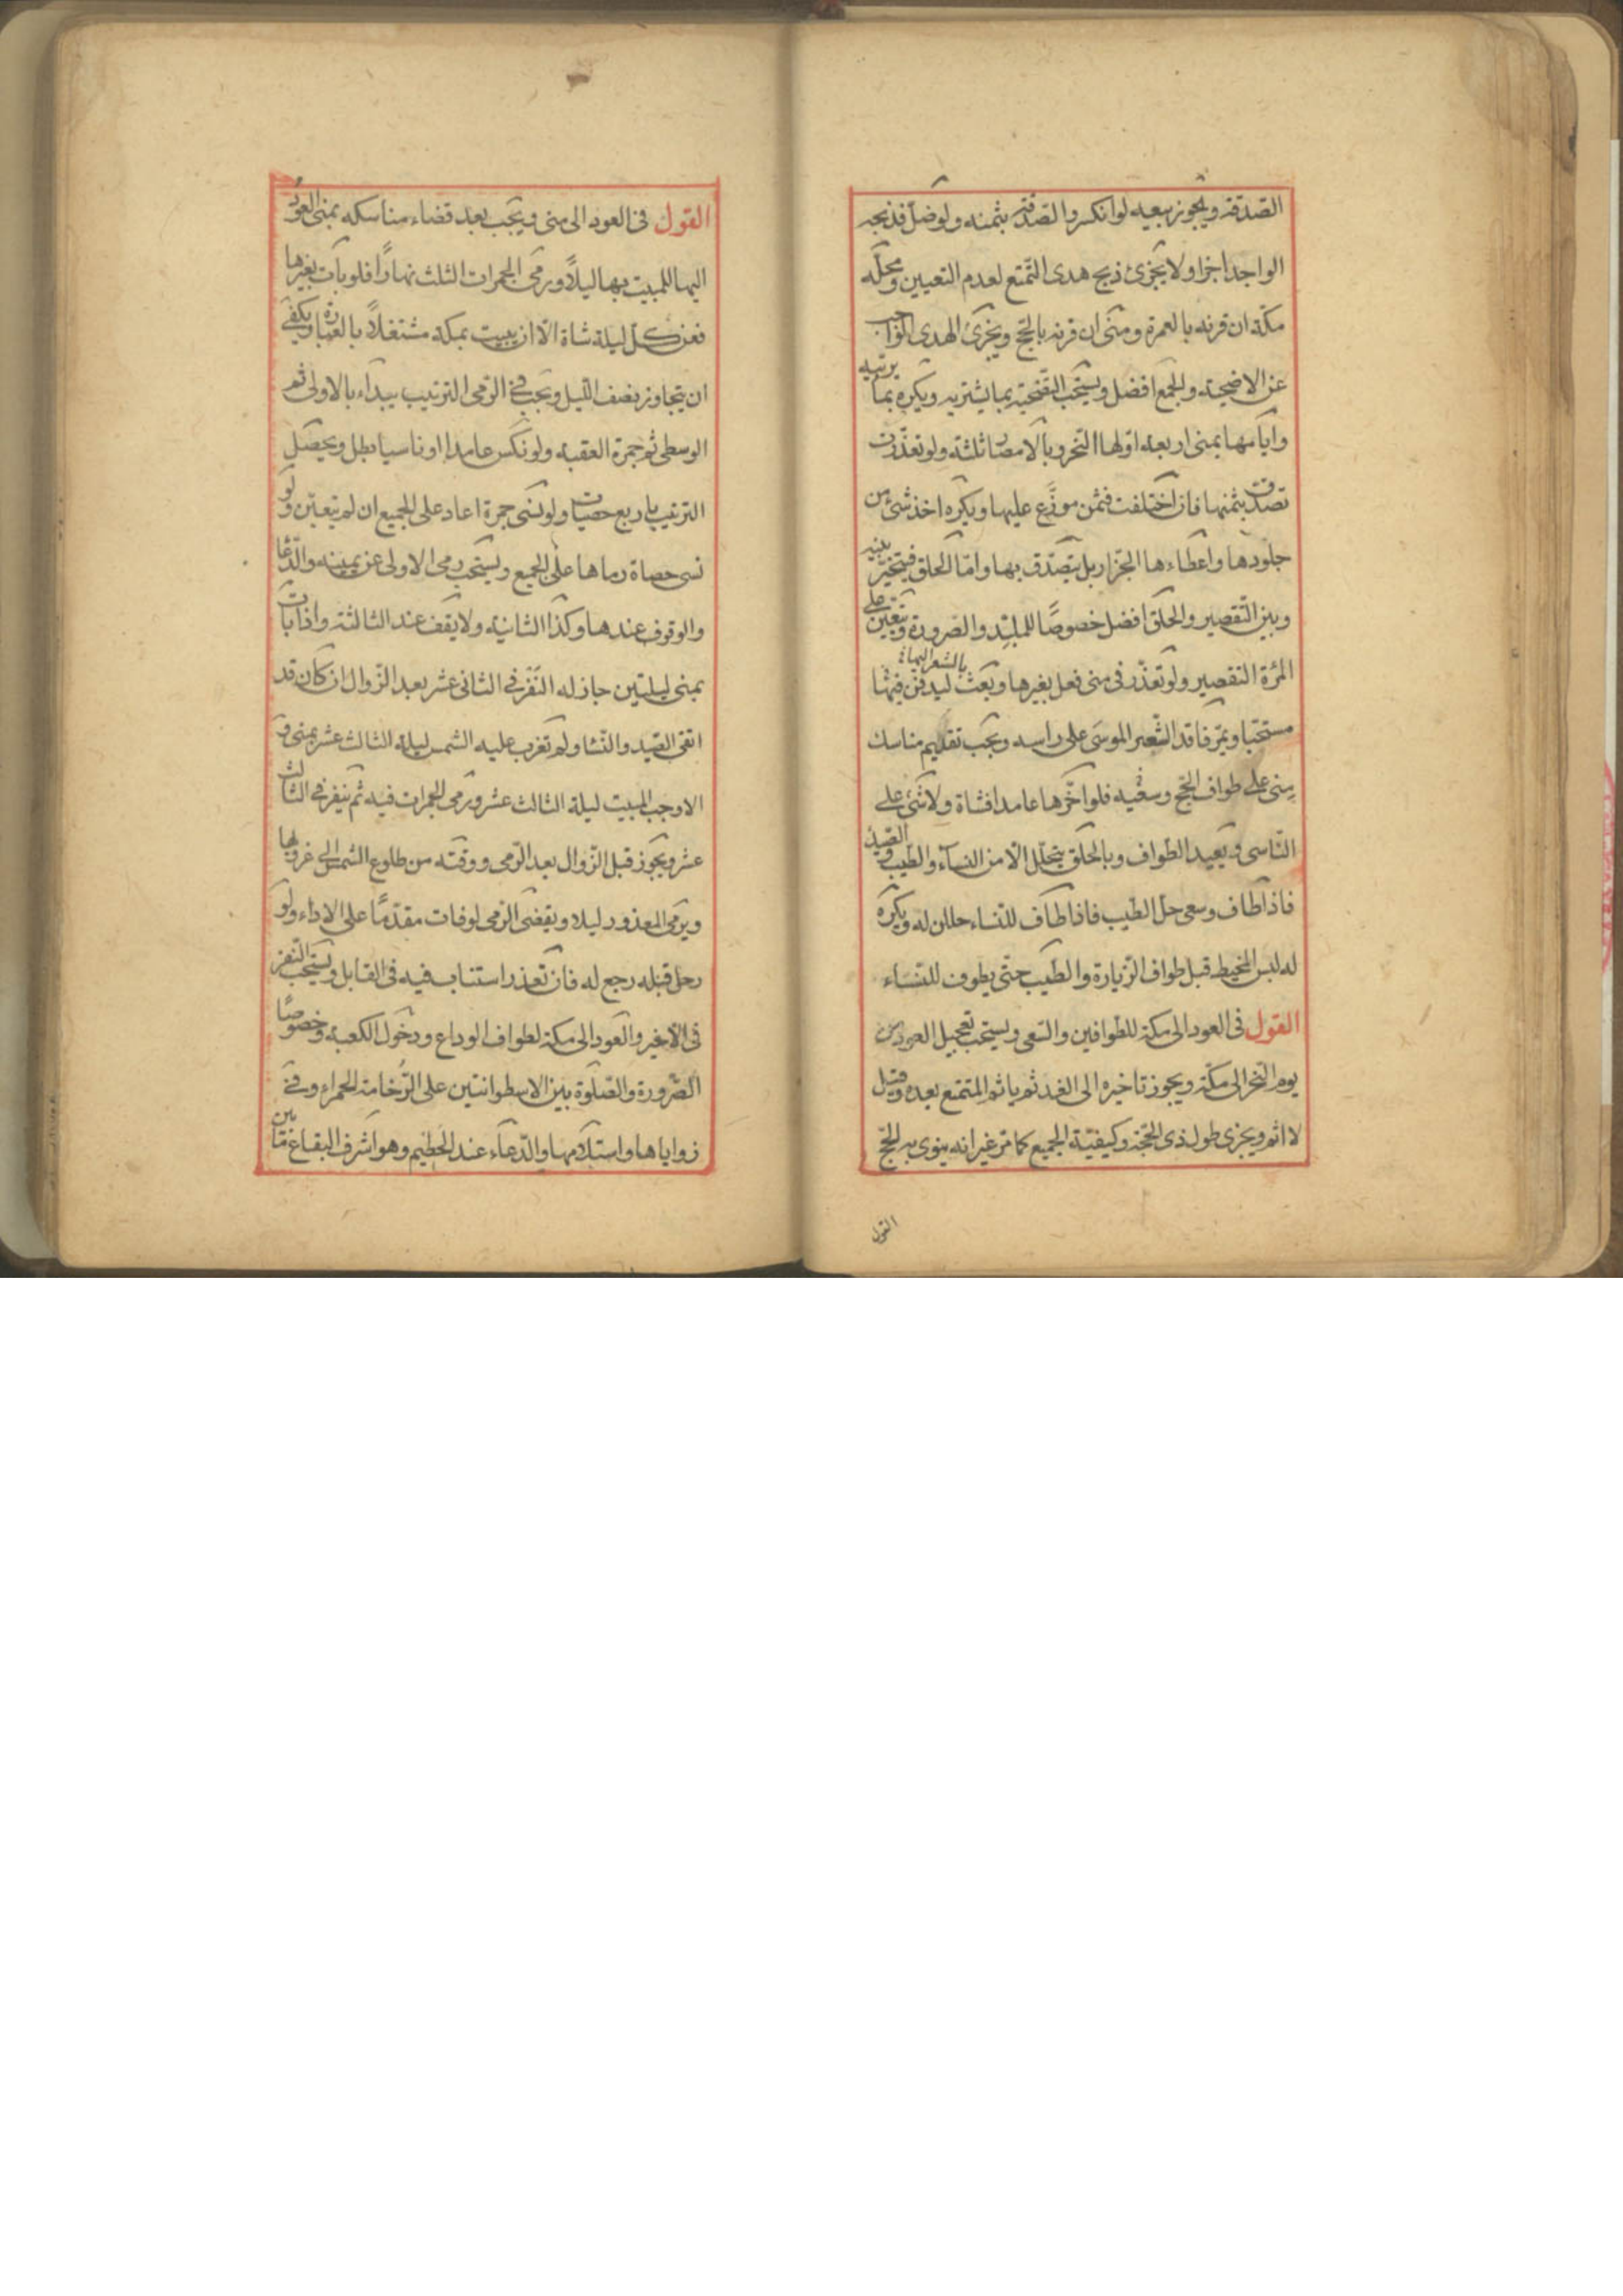 الصدقة ويجوز بيعه لو انكسر والصدقة بثمنه ولو ضل فذبحه
الواجد اجزا ولا يجزئ ذبح هدى التمتع لعدم التعيين ومحله
مكة ان قرنه بالعمرة ومنى ان قرنه بالحج ويجزى الهدى الواجب
عن الاضحية والجمع افضل ويستحب التضحية بما يشتريه ويكره بما يربّيه
وايامها بمنى اربعة اولها النحر وبالامصار ثلثة ولو تعذرت
تصدق بثمنها فان اختلفت فثمن موزع عليها ويكره اخذ شئ من
جلودها واعطاءها الجزار بل يتصدق بها واما الحلق فيتخير بينه
وبين التقصير والحلق افضل خصوصًا للملبّد والصرورة ويتعين على
المرئة التقصير ولو تعذر فى منى فعل بغيرها وبعث بالشعر اليها ليدفن فيها
مستحبا ويمرّ فاقد الشعر الموسى على راسه ويجب تقديم مناسك
منى على طواف الحج وسعيه فلو اخرها عامدا فشاة ولا شئ على
الناسى ويعيد الطواف وبالحلق يتحلل الا من النساء والطيب والصيد
فاذا طاف وسعى حل الطيب فاذا طاف للنساء حللن له ويكره
له لبس المخيط قبل طواف الزيارة والطيب حتى يطوف للنساء
القول فى العود الى مكة للطوافين والسعى ويستحب تعجيل العود من
يوم النحر الى مكة ويجوز تاخيره الى الغد ثم ياثم المتمتع بعده وقيل
لا اثم ويجزى طول ذى الحجة وكيفية الجميع كما مرّ غير انه ينوى به الحج
القول
القول فى العود الى منى ويجب بعد قضاء مناسكه بمنى العود
اليها للمبيت بها ليلاً ورمى الجمرات الثلث نهارًا فلو بات بغيرها
فعن كل ليلة شاة الا ان يبيت بمكة مشتغلاً بالعبادة ويكفى
ان يتجاوز نصف الليل ويجب فى الرمى الترتيب يبداء بالاولى ثم
الوسطى ثم جمرة العقبة ولو نكس عامدا او ناسيا بطل ويحصل
الترتيب باربع حصيات ولو نسى جمرة اعاد على الجميع ان لم يتعين ولو
نسى حصاة رماها على الجميع ويستحب رمى الاولى عن يمينه والدعا
والوقوف عندها وكذا الثانية ولا يقف عند الثالثة واذا بات
بمنى ليلتين جاز له النفر فى الثانى عشر بعد الزوال ان كان قد
اتقى الصيد والنسا ولم تغرب عليه الشمس ليلة الثالث عشر بمنى و
الا وجب المبيت ليلة الثالث عشر ورمى الجمرات فيه ثم ينفر فى الثالث
عشر ويجوز قبل الزوال بعد الرمى ووقته من طلوع الشمس الى غروبها
ويرمى المعذور ليلا ويقضى الرمى لو فات مقدمًا على الاداء ولو
رحل قبله رجع له فان تعذر استناب فيه فى القابل ويستحب النفر
فى الاخير والعود الى مكة لطواف الوداع ودخول الكعبة وخصوصًا
الصرورة والصلوة بين الاسطوانتين على الرخامة الحمراء وفى
زواياها واستلامها والدعاء عند الحطيم وهو اشرف البقاع ما بين